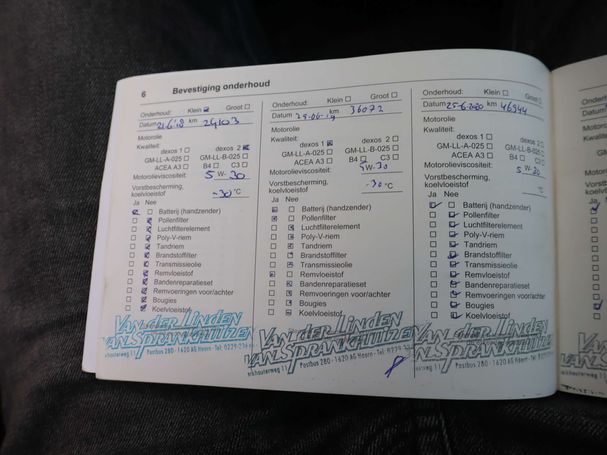 6
Bevestiging onderhoud
Onderhoud: Klein Groot
Datum 21-6-18 km 24103
Motorolie
Kwaliteit:
dexos 1 dexos 2
GM-LL-A-025 GM-LL-B-025
ACEA A3 B4 C3
Motorolieviscositeit:
5 W- 30
Vorstbescherming,
koelvloeistof
-30 °C
Ja Nee
Batterij (handzender)
Pollenfilter
Luchtfilterelement
Poly-V-riem
Tandriem
Brandstoffilter
Transmissieolie
Remvloeistof
Bandenreparatieset
Remvoeringen voor/achter
Bougies
Koelvloeistof
Van der Linden
van Sprankhuizen
Postbus 280 - 1620 AG Hoorn - Tel:
Onderhoud: Klein Groot
Datum km 36072
Motorolie
Kwaliteit:
dexos 1 dexos 2
GM-LL-A-025 GM-LL-B-025
ACEA A3 B4 C3
Motorolieviscositeit:
5W-30
Vorstbescherming,
koelvloeistof
-30 °C
Ja Nee
Batterij (handzender)
Pollenfilter
Luchtfilterelement
Poly-V-riem
Tandriem
Brandstoffilter
Transmissieolie
Remvloeistof
Bandenreparatieset
Remvoeringen voor/achter
Bougies
Koelvloeistof
Van der Linden
van Sprankhuizen
Postbus 280 - 1620 AG Hoorn - Tel:
Onderhoud: Klein Groot
Datum 25-6-2020 km 46944
Motorolie
Kwaliteit:
dexos 1
dexos 2
GM-LL-A-025 GM-LL-B-025
ACEA A3 B4 C3
Motorolieviscositeit:
5 W- 20
Vorstbescherming,
koelvloeistof
°C
Ja Nee
Batterij (handzender)
Pollenfilter
Luchtfilterelement
Poly-V-riem
Tandriem
Brandstoffilter
Transmissieolie
Remvloeistof
Bandenreparatieset
Remvoeringen voor/achter
Bougies
Koelvloeistof
Van der Linden
van Sprankhuizen
Postbus 280 - 1620 AG Hoorn - Tel: